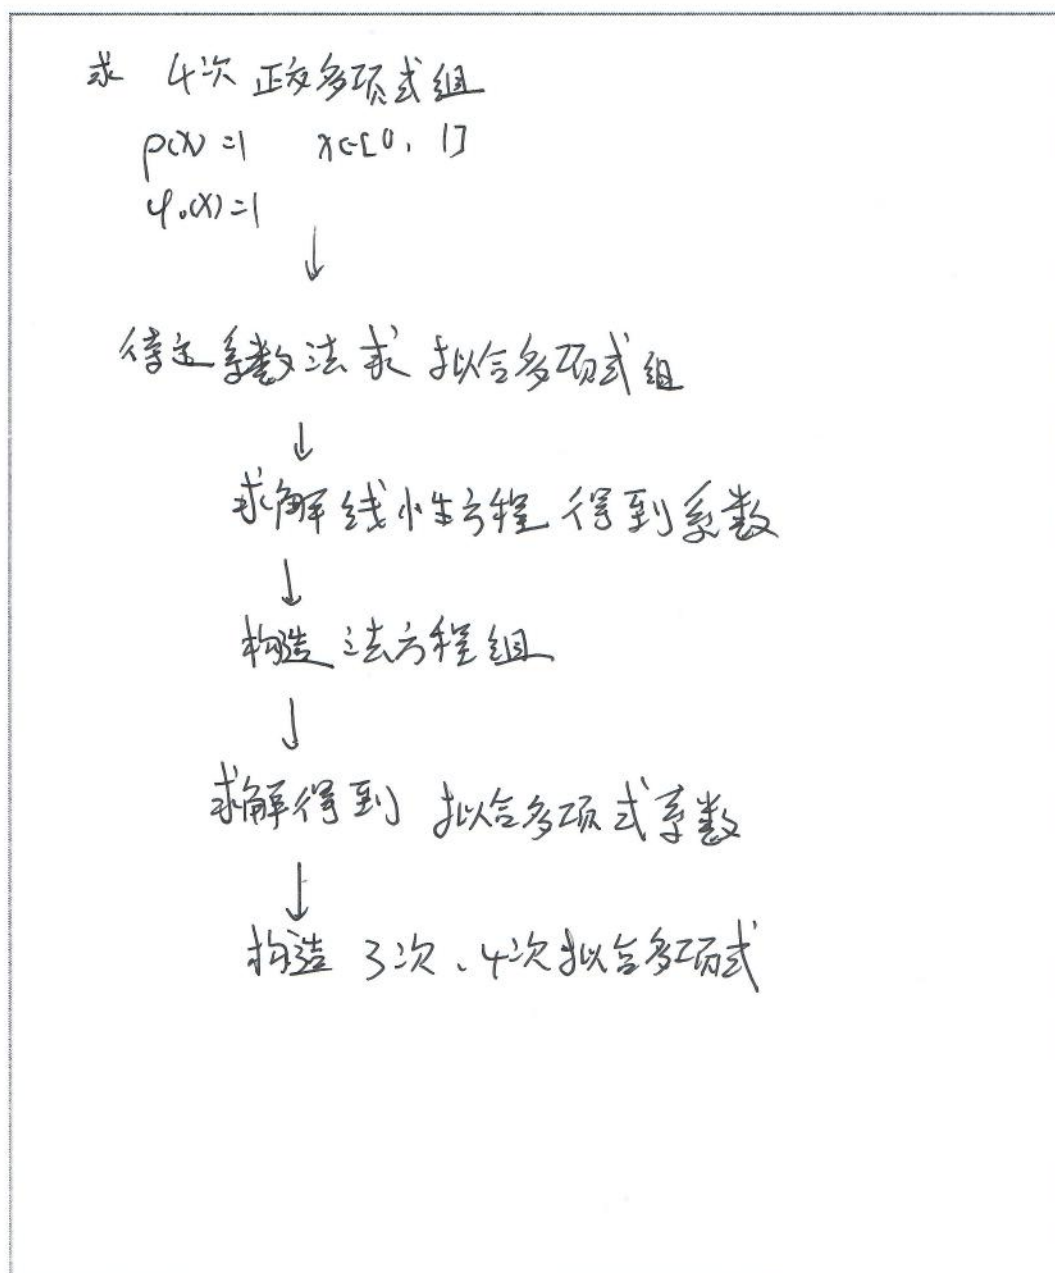 求 4次 正交多项式组
ρ(x)=1 x∈[0, 1]
φ₀(x)=1
↓
待定系数法求 拟合多项式组
↓
求解线性方程 得到系数
↓
构造 法方程组
↓
求解得到 拟合多项式系数
↓
构造 3次、4次拟合多项式